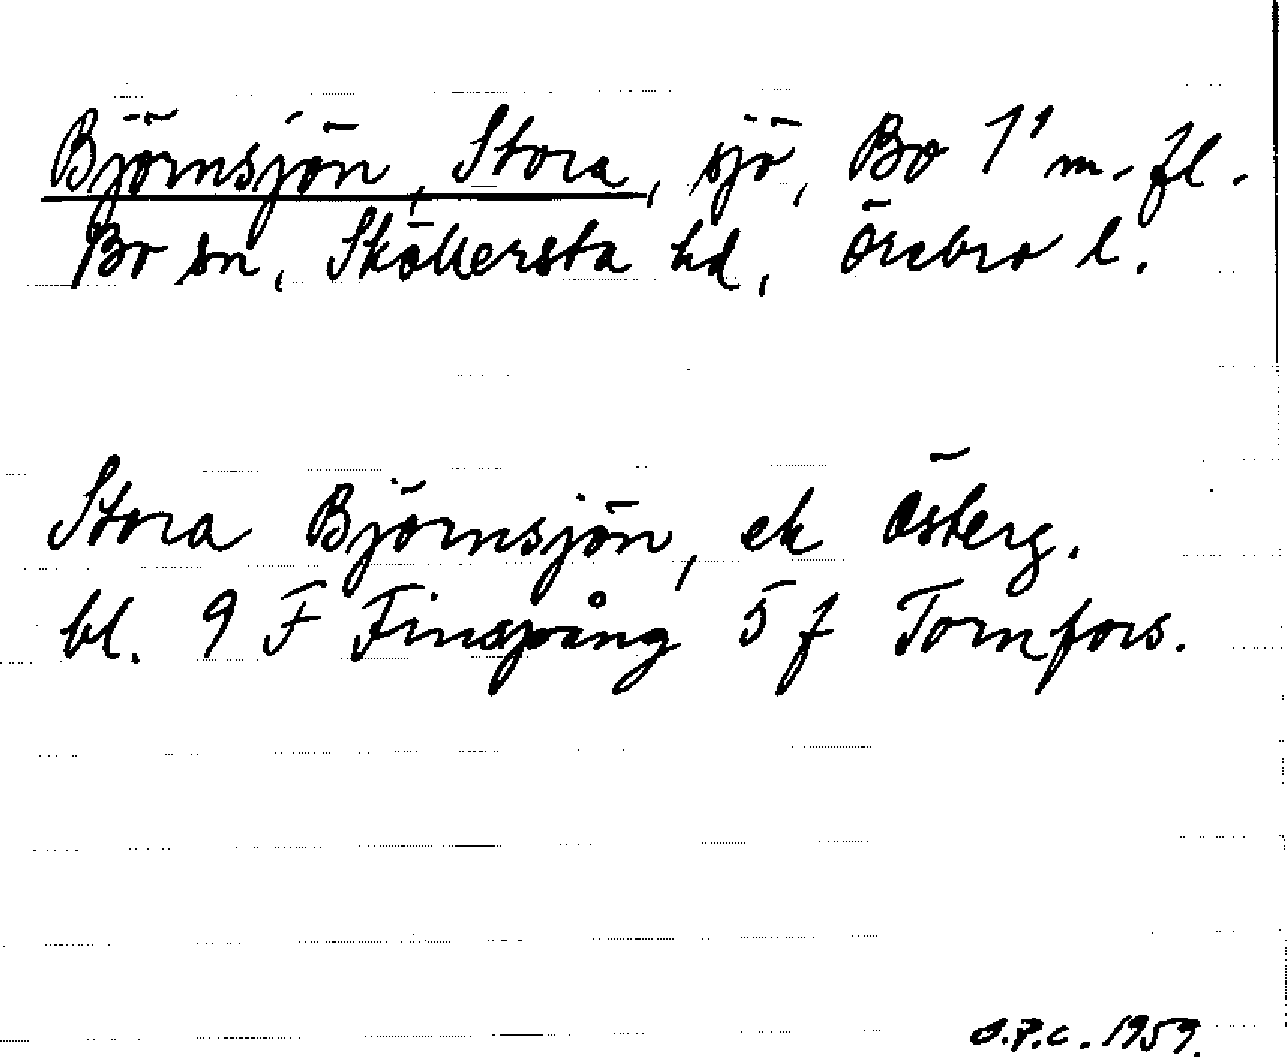 Björnsjön, Stora, sjö, Bo 1¹ m. fl.
Bo sn, Sköllersta hd, Örebro l.
Stora Björnsjön, ek Österg.
bl. 9 F Finspång 5 f Tornfors.
O.P.C. 1959.